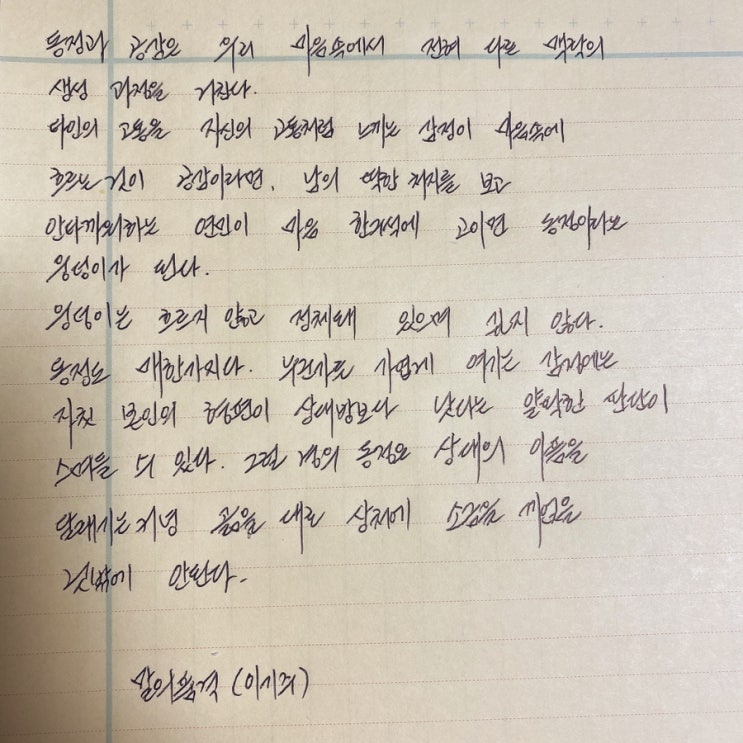 동정과 공감은 우리 마음속에서 전혀 다른 맥락의
생성 과정을 거친다.
타인의 고통을 자신의 고통처럼 느끼는 감정이 마음속에
흐르는 것이 공감이라면, 남의 딱한 처지를 보고
안타까워하는 연민이 마음 한구석에 고이면 동정이라는
웅덩이가 된다.
웅덩이는 흐르지 않고 정체돼 있으며 깊지 않다.
동정도 매한가지다. 누군가를 가엽게 여기는 감정에는
자칫 본인의 형편이 상대방보다 낫다는 얄팍한 판단이
스며들 수 있다. 그럴 경우 동정은 상대의 아픔을
달래기는커녕 곪을 대로 상처에 소금을 끼얹을
것밖에 안된다.
말의품격 (이기주)